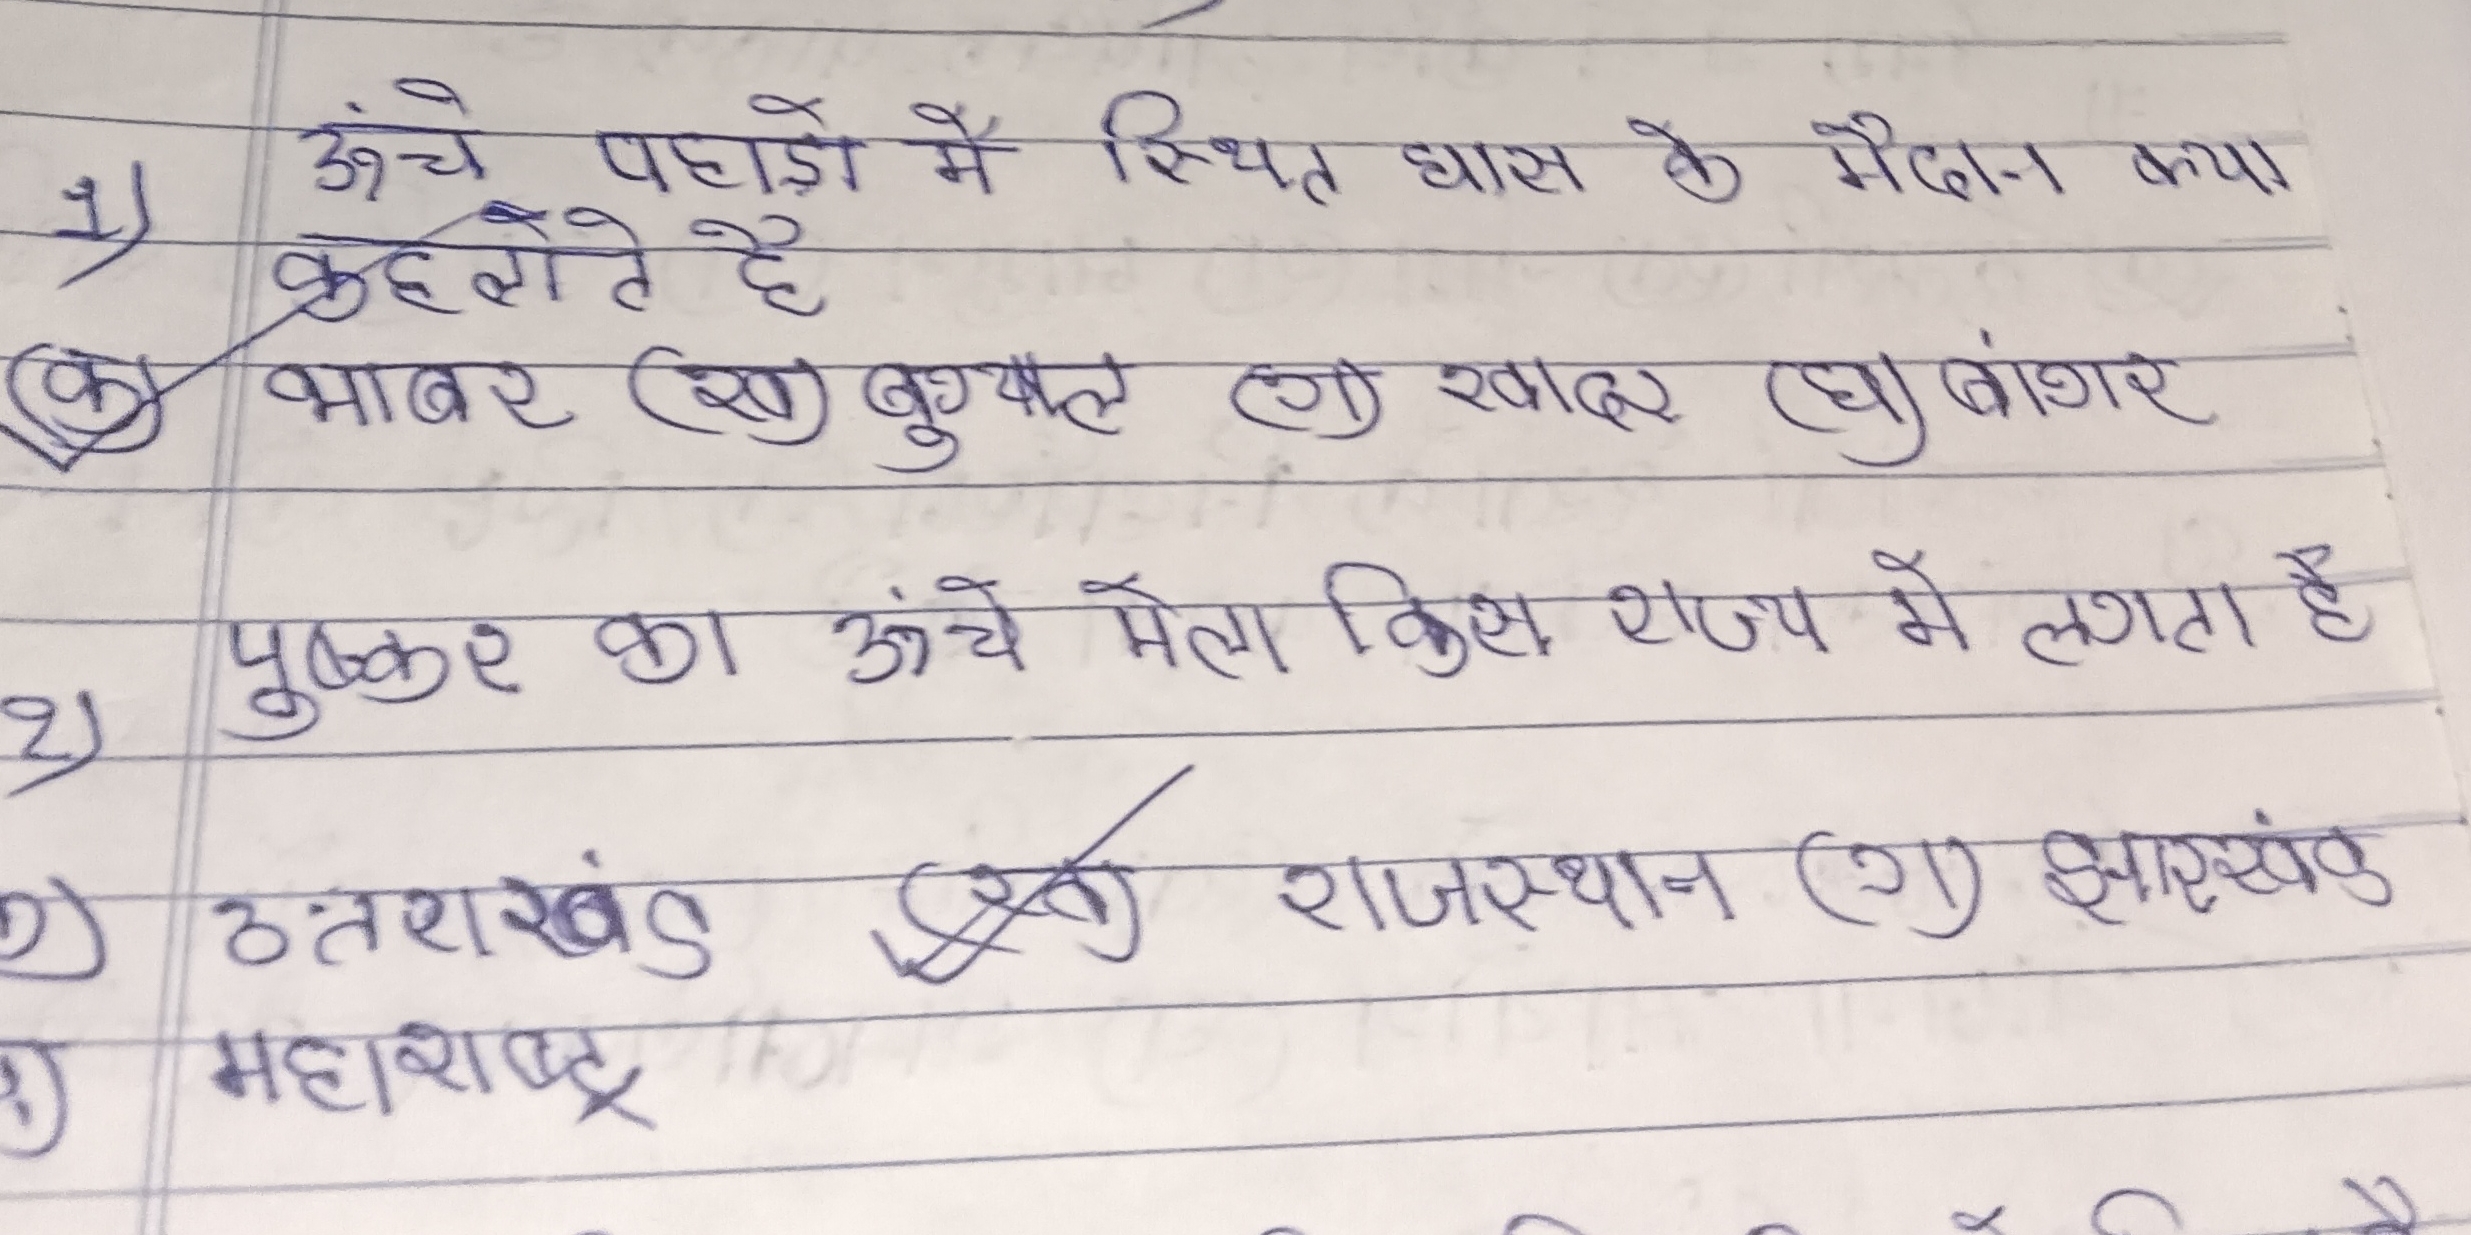 1) ऊंचे पहाड़ो में स्थित घास के मैदान क्या
कहलाते है
(क) भाबर (ख) बुग्याल (ग) खादर (घ) बांगर
2) पुष्कर का ऊंचे मेला किस राज्य में लगता है
उत्तराखंड (ख) राजस्थान (ग) झारखंड
महाराष्ट्र